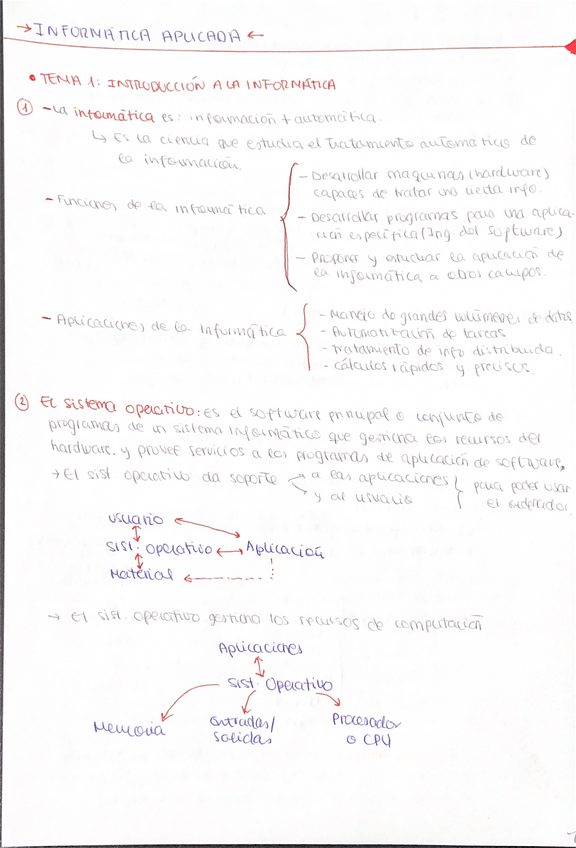 →INFORMÁTICA APLICADA←
• TEMA 1: INTRODUCCIÓN A LA INFORMÁTICA
① - La informática es: información + automática.
↳ Es la ciencia que estudia el tratamiento automático de
la información.
- Funciones de la informática
- Desarrollar maquinas (hardware)
capaces de tratar una cierta info.
- Desarrollar programas para una aplica-
ción específica (Ing. del software)
- Proponer y estudiar la aplicación de
la informática a otros campos.
- Aplicaciones de la informática
- Manejo de grandes volúmenes de datos
- Automatización de tareas
- tratamiento de info distribuida.
- cálculos rápidos y precisos.
② El sistema operativo: Es el software principal o conjunto de
programas de un sistema informático que gestiona los recursos del
hardware. y provee servicios a los programas de aplicación de software,
→ El sist operativo da soporte → a las aplicaciones
→ y al usuario
para poder usar
el ordenador.
usuario
sist. operativo ↔ Aplicación
Material
→ El sist. operativo gestiona los recursos de computación
Aplicaciones
sist. Operativo
Memoria
entradas/
salidas
Procesador
o CPU